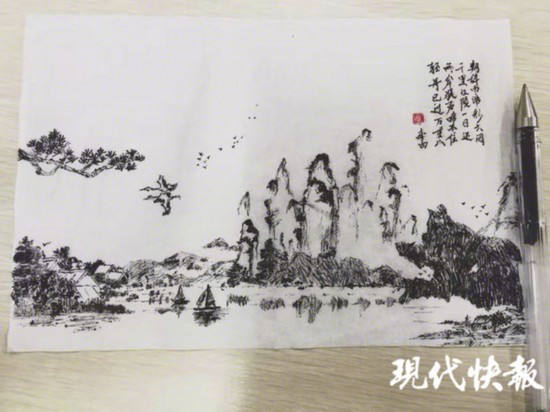 朝辞白帝彩云间
千里江陵一日还
两岸猿声啼不住
轻舟已过万重山
现代快報